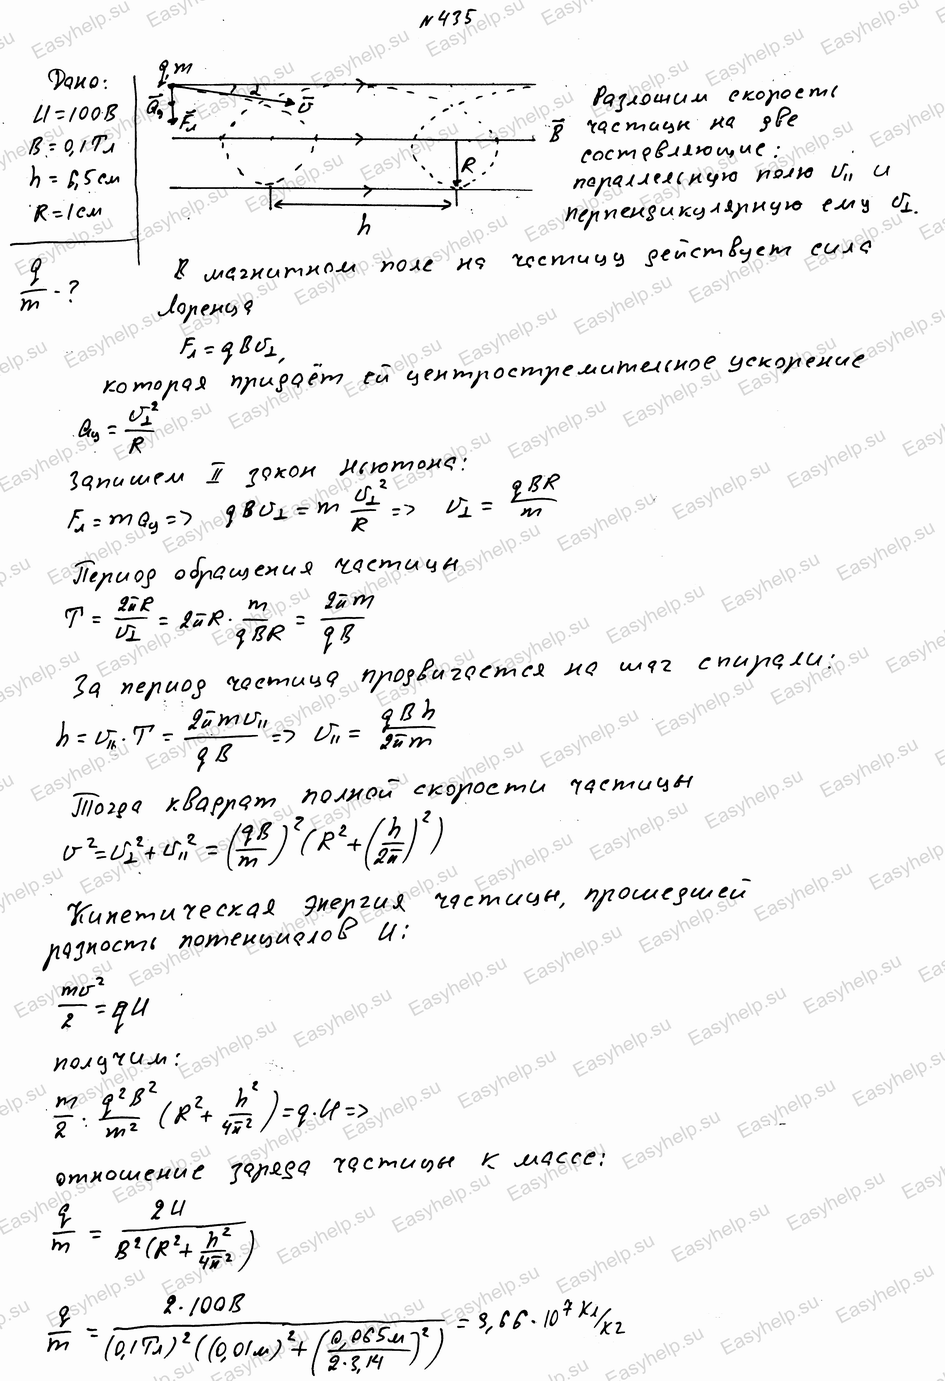 №435
Дано:
U=100В
B=0,1Тл
h=6,5см
R=1см
q/m - ?
q,m
a⃗ц
F⃗л
α
v⃗
B⃗
R
h
Разложим скорость
частицы на две
составляющие:
параллельную полю v∥ и
перпендикулярную ему v⊥.
В магнитном поле на частицу действует сила
Лоренца
Fл=qBv⊥,
которая придаёт ей центростремительное ускорение
aц = v⊥²/R
Запишем II закон Ньютона:
Fл=maц=> qBv⊥=m v⊥²/R => v⊥ = qBR/m
Период обращения частицы
T = 2πR/v⊥ = 2πR · m/qBR = 2πm/qB
За период частица продвигается на шаг спирали:
h=v∥·T = 2πmv∥/qB => v∥ = qBh/2πm
Тогда квадрат полной скорости частицы
v²=v⊥²+v∥² = (qB/m)²(R²+(h/2π)²)
Кинетическая энергия частицы, прошедшей
разность потенциалов U:
mv²/2 = qU
получим:
m/2 · q²B²/m² (R²+ h²/4π²)=q·U=>
отношение заряда частицы к массе:
q/m = 2U/B²(R²+h²/4π²)
q/m = 2·100В/(0,1Тл)²((0,01м)²+(0,065м/2·3,14)²) = 9,66·10⁷ Кл/кг
Easyhelp.su